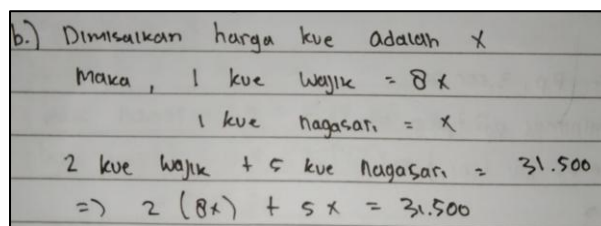 b.) Dimisalkan harga kue adalah x
Maka, 1 kue wajik = 8x
1 kue nagasari = x
2 kue wajik + 5 kue nagasari = 31.500
=> 2 (8x) + 5x = 31.500